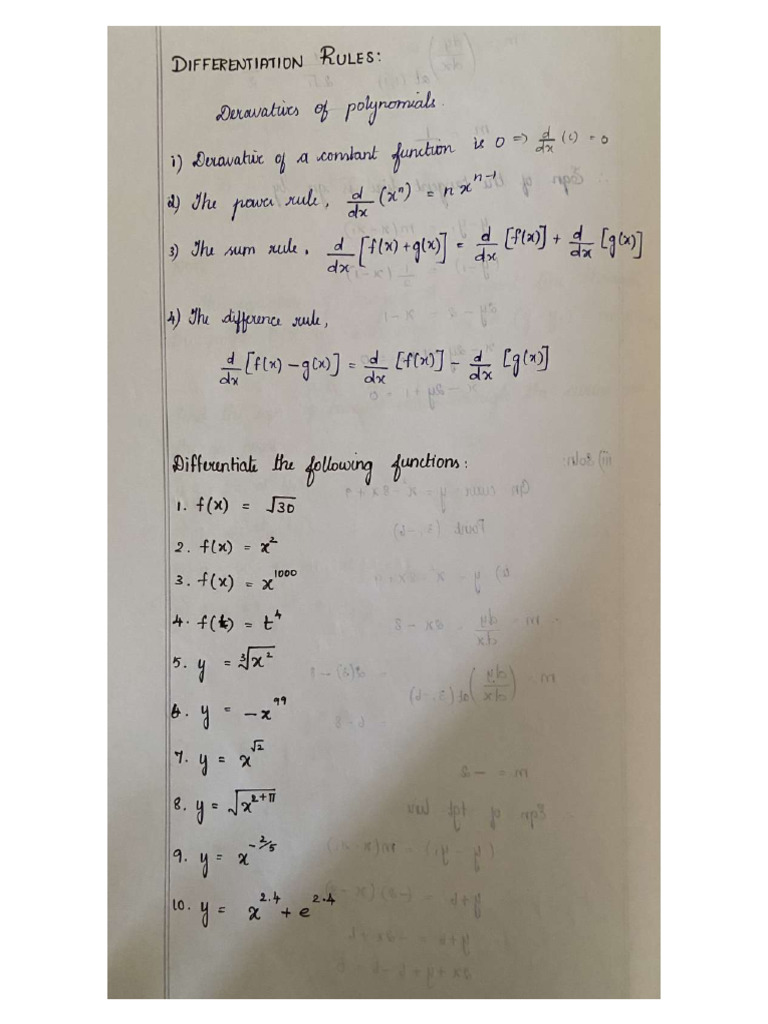 DIFFERENTIATION RULES:
Deravatives of polynomials.
1) Deravative of a constant function is 0 ⇒ d/dx (c) = 0
2) The power rule, d/dx (xⁿ) = n xⁿ⁻¹
3) The sum rule, d/dx [f(x)+g(x)] = d/dx [f(x)] + d/dx [g(x)]
4) The difference rule,
d/dx [f(x) – g(x)] = d/dx [f(x)] – d/dx [g(x)]
Differentiate the following functions:
1. f(x) = √30
2. f(x) = x²
3. f(x) = x¹⁰⁰⁰
4. f(t) = t⁴
5. y = ∛x²
6. y = –x⁹⁹
7. y = x^√2
8. y = √x^(2+π)
9. y = x^(-2/5)
10. y = x^2.4 + e^2.4